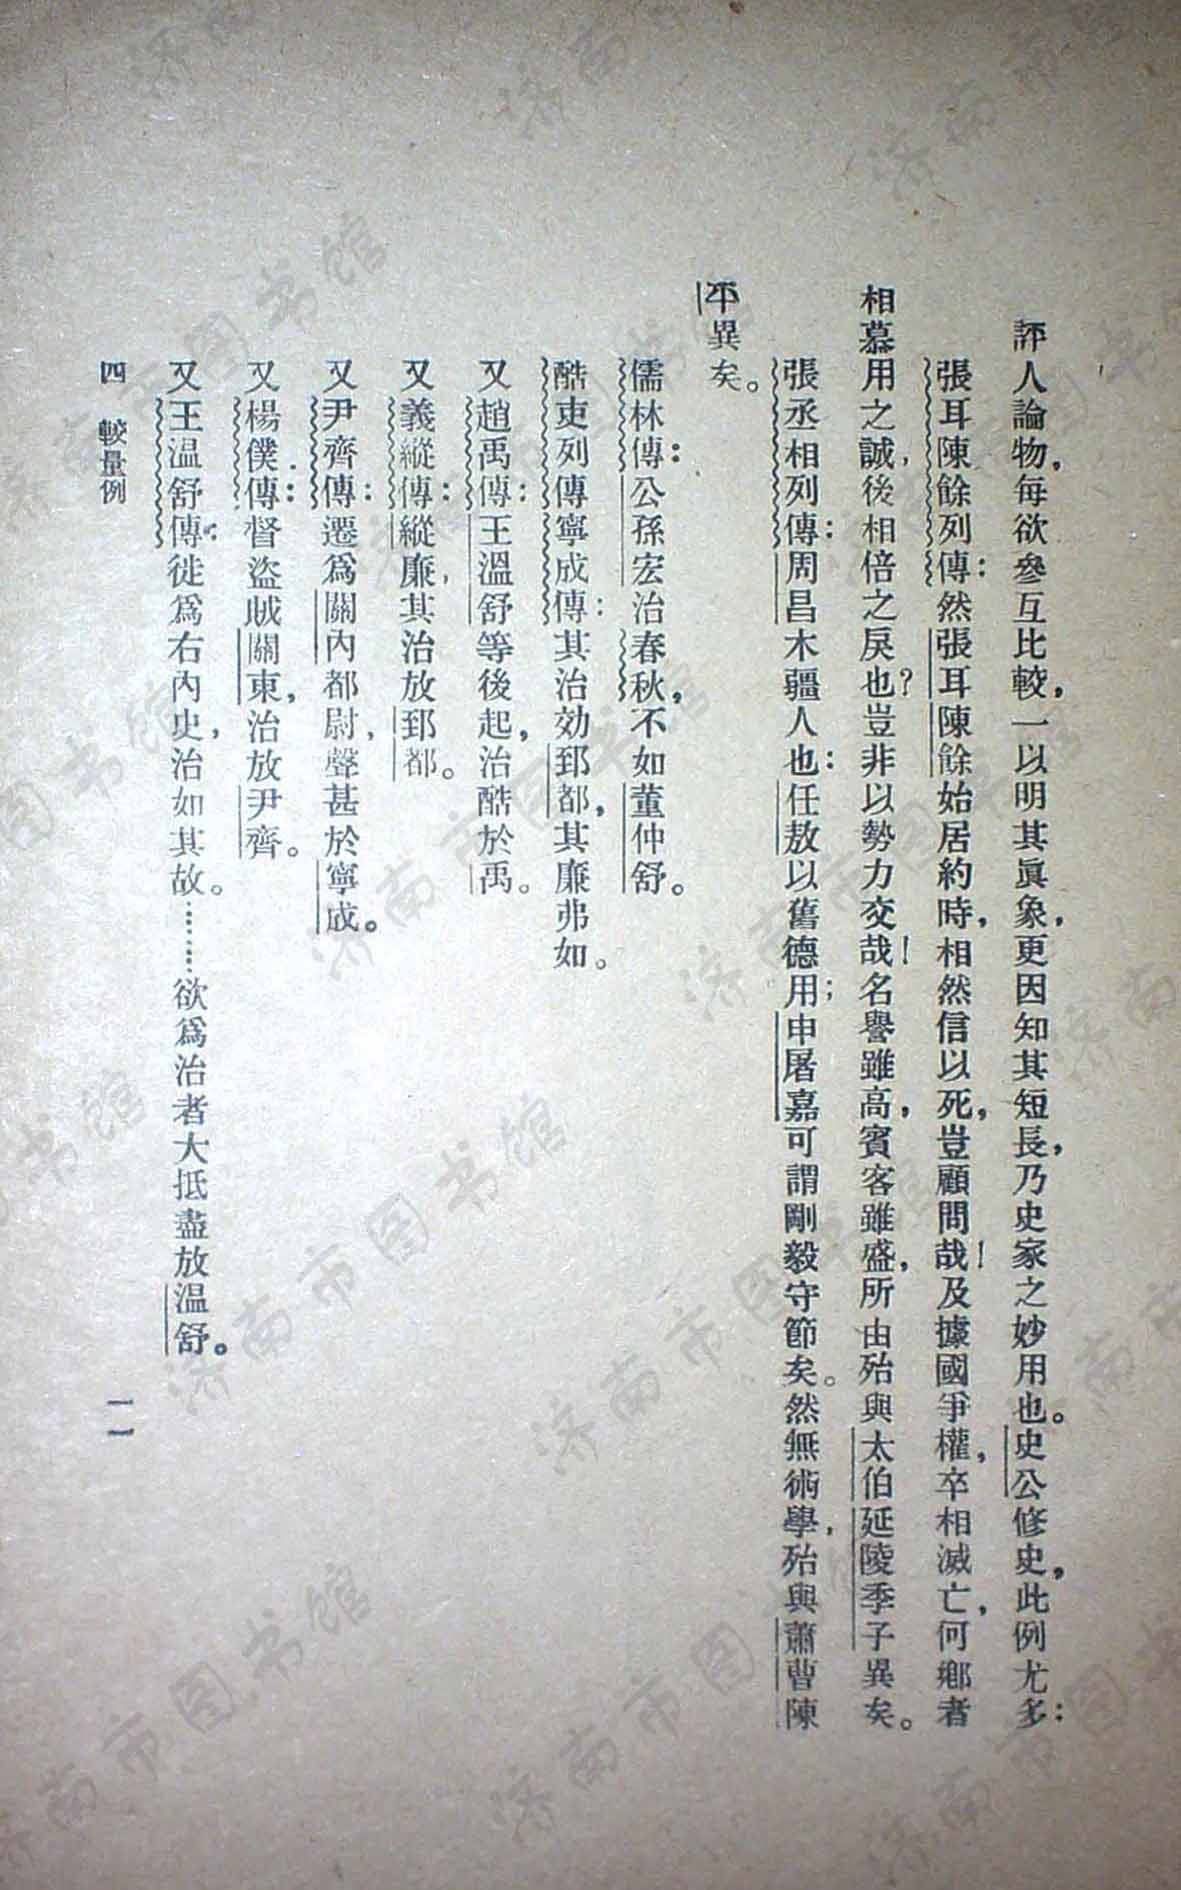 評人論物，每欲參互比較，一以明其眞象，更因知其短長，乃史家之妙用也。史公修史，此例尤多：
張耳陳餘列傳：然張耳陳餘始居約時，相然信以死，豈顧問哉！及據國爭權，卒相滅亡，何鄉者
相慕用之誠，後相倍之戾也？豈非以勢力交哉！名譽雖高，賓客雖盛，所由殆與太伯延陵季子異矣。
張丞相列傳：周昌木疆人也：任敖以舊德用；申屠嘉可謂剛毅守節矣。然無術學，殆與蕭曹陳
平異矣。
儒林傳：公孫宏治春秋，不如董仲舒。
酷吏列傳寧成傳：其治効郅都，其廉弗如。
又趙禹傳：王溫舒等後起，治酷於禹。
又義縱傳：縱廉，其治放郅都。
又尹齊傳：遷爲關內都尉，聲甚於寧成。
又楊僕傳：督盜賊關東，治放尹齊。
又王温舒傳：徙爲右內史，治如其故。………欲爲治者大抵盡放温舒。
四　較量例
一一
济南市图书馆